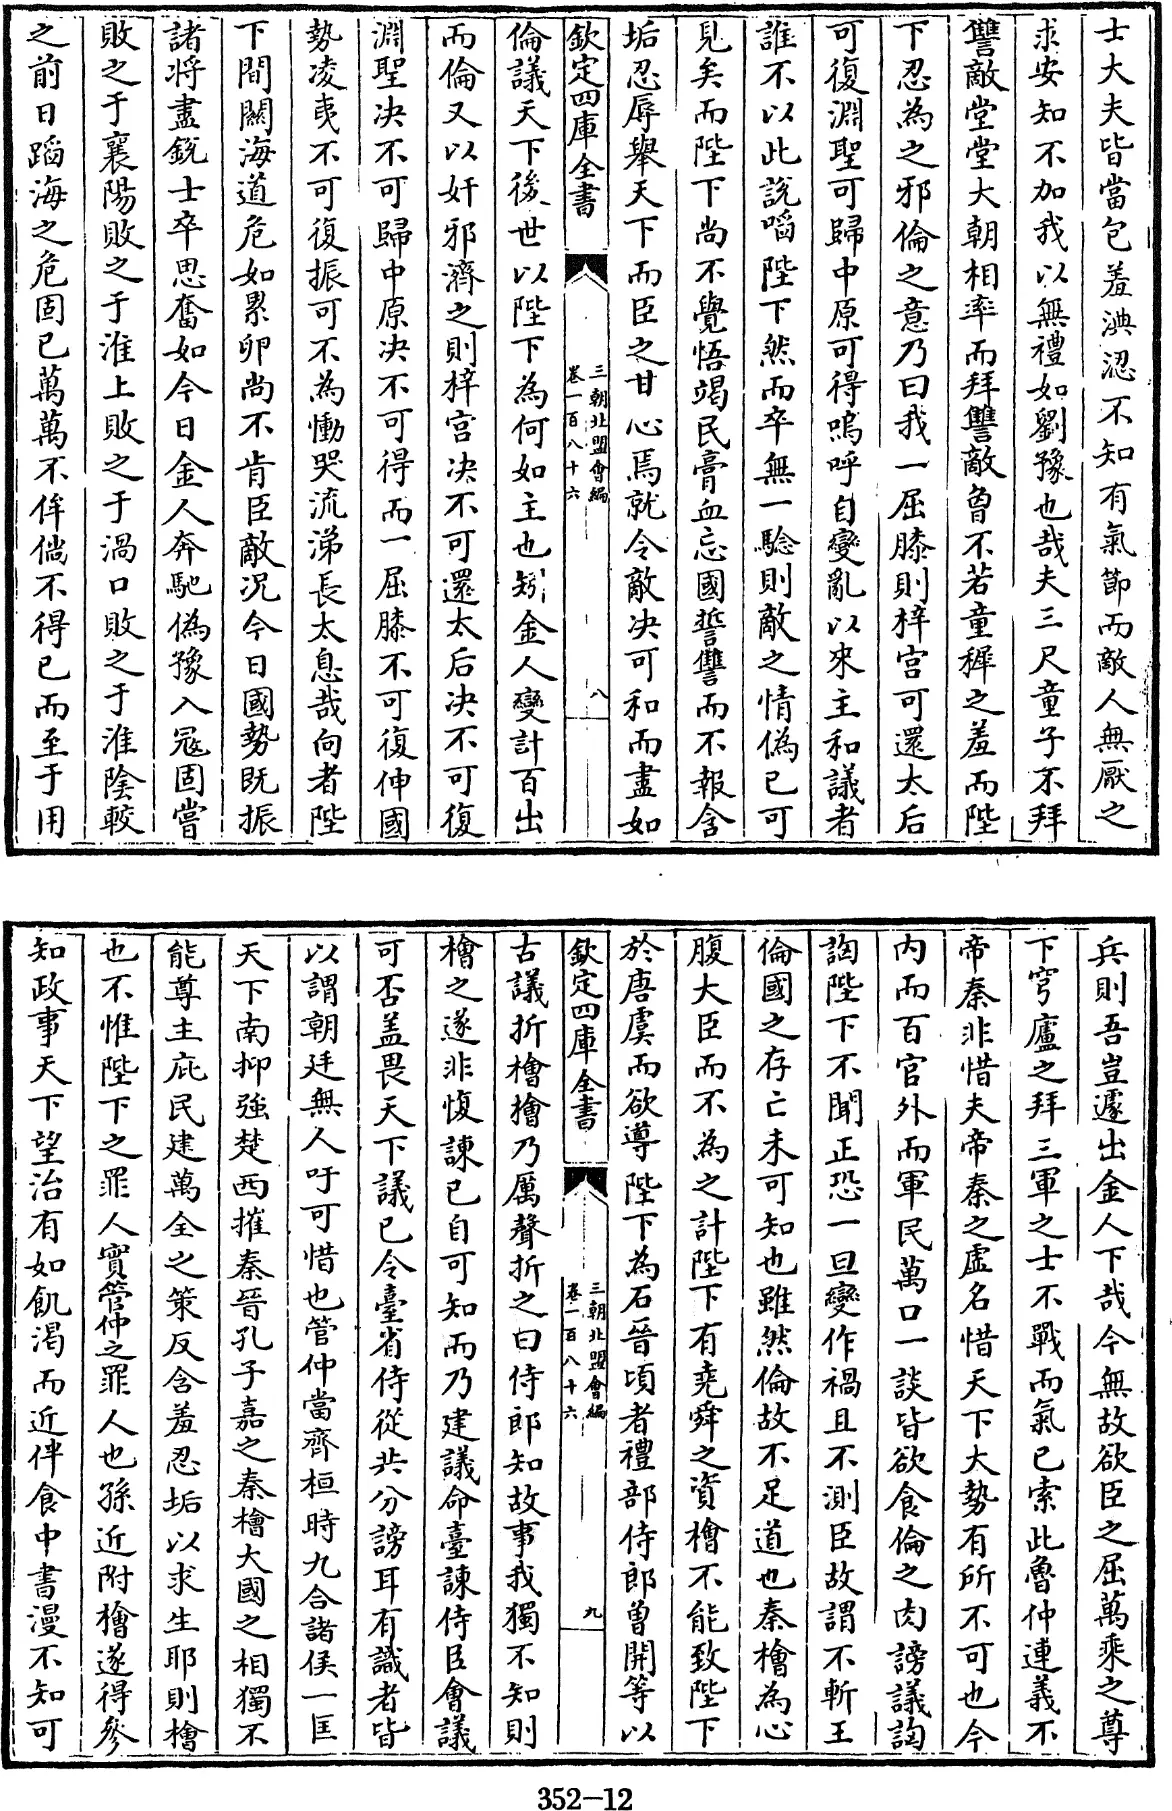 士大夫皆當包羞淟涊不知有氣節而敵人無厭之
求安知不加我以無禮如劉豫也哉夫三尺童子不拜
讐敵堂堂大朝相率而拜讐敵曾不若童穉之羞而陛
下忍為之邪倫之意乃曰我一屈膝則梓宫可還太后
可復淵聖可歸中原可得嗚呼自變亂以來主和議者
誰不以此説啗陛下然而卒無一驗則敵之情偽已可
見矣而陛下尚不覺悟竭民膏血忘國誓讐而不報含
垢忍辱舉天下而臣之甘心焉就令敵决可和而盡如
欽定四庫全書
三朝北盟會編
卷一百八十六
八
倫議天下後世以陛下為何如主也矧金人變計百出
而倫又以奸邪濟之則梓宫决不可還太后决不可復
淵聖决不可歸中原决不可得而一屈膝不可復伸國
勢凌夷不可復振可不為慟哭流涕長太息哉向者陛
下間關海道危如累卵尚不肯臣敵况今日國勢既振
諸将盡鋭士卒思奮如今日金人奔馳偽豫入冦固嘗
敗之于襄陽敗之于淮上敗之于渦口敗之于淮隂較
之前日蹈海之危固已萬萬不侔倘不得已而至于用
兵則吾豈遽出金人下哉今無故欲臣之屈萬乘之尊
下穹廬之拜三軍之士不戰而氣已索此魯仲連義不
帝秦非惜夫帝秦之虚名惜天下大勢有所不可也今
内而百官外而軍民萬口一談皆欲食倫之肉謗議訩
訩陛下不聞正恐一旦變作禍且不測臣故謂不斬王
倫國之存亡未可知也雖然倫故不足道也秦檜為心
腹大臣而不為之計陛下有堯舜之資檜不能致陛下
於唐虞而欲導陛下為石晉頃者禮部侍郎曾開等以
欽定四庫全書
三朝北盟會編
卷一百八十六
九
古議折檜檜乃厲聲折之曰侍郎知故事我獨不知則
檜之遂非愎諫已自可知而乃建議命臺諫侍臣會議
可否盖畏天下議已令臺省侍從共分謗耳有識者皆
以謂朝廷無人吁可惜也管仲當齊桓時九合諸侯一匡
天下南抑強楚西摧秦晉孔子嘉之秦檜大國之相獨不
能尊主庇民建萬全之策反含羞忍垢以求生耶則檜
也不惟陛下之罪人實管仲之罪人也孫近附檜遂得參
知政事天下望治有如飢渴而近伴食中書漫不知可
352-12